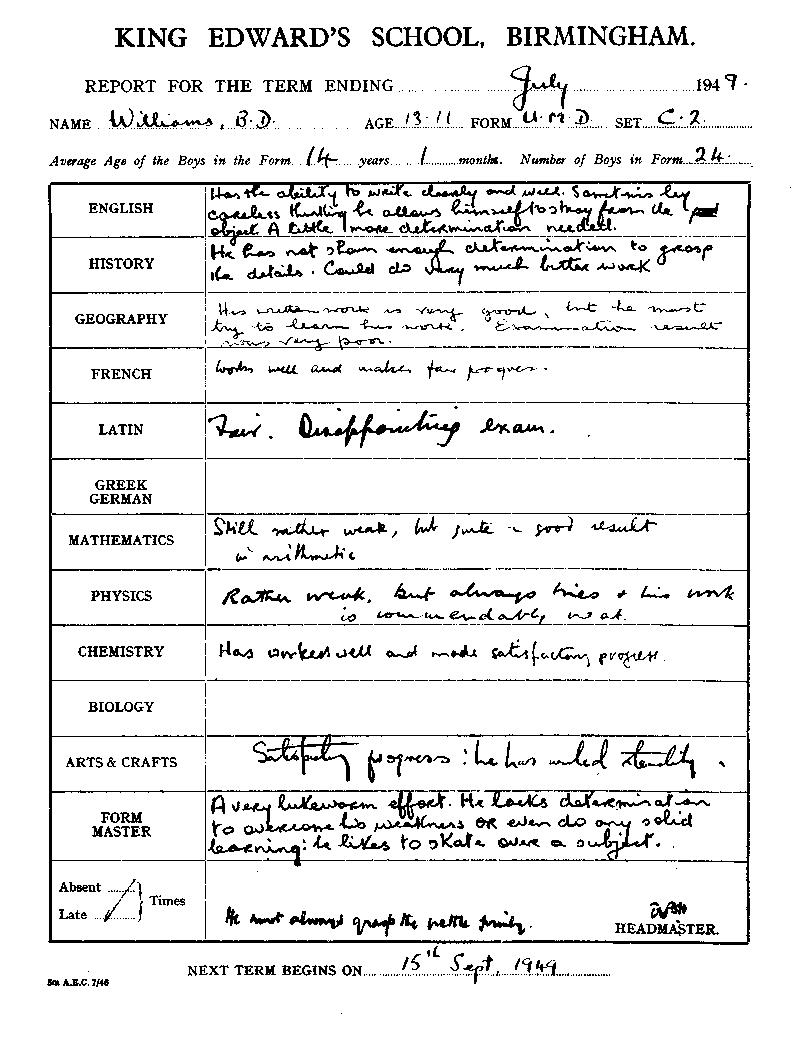 KING EDWARD'S SCHOOL, BIRMINGHAM.
REPORT FOR THE TERM ENDING July 1949.
NAME Williams, B.D. AGE 13.11 FORM U.M.D SET C.2.
Average Age of the Boys in the Form 14 years 1 months. Number of Boys in Form 24.
ENGLISH
Has the ability to write clearly and well. Sometimes by
careless thinking he allows himself to stray from the
object. A little more determination needed.
HISTORY
He has not shown enough determination to grasp
the details. Could do very much better work
GEOGRAPHY
His written work is very good, but he must
try to learn his work. Examination result
was very poor.
FRENCH
Works well and makes fair progress.
LATIN
Fair. Disappointing exam.
GREEK
GERMAN
MATHEMATICS
Still rather weak, but quite a good result
in arithmetic
PHYSICS
Rather weak, but always tries & his work
is commendably neat.
CHEMISTRY
Has worked well and made satisfactory progress.
BIOLOGY
ARTS & CRAFTS
Satisfactory progress: he has worked steadily.
FORM
MASTER
A very lukewarm effort. He lacks determination
to overcome his weakness or even do any solid
learning: he likes to skate over a subject.
Absent
Late
Times
He must always grasp the nettle firmly.
HEADMASTER.
NEXT TERM BEGINS ON 15th Sept, 1949
5m A.E.C. 7/48